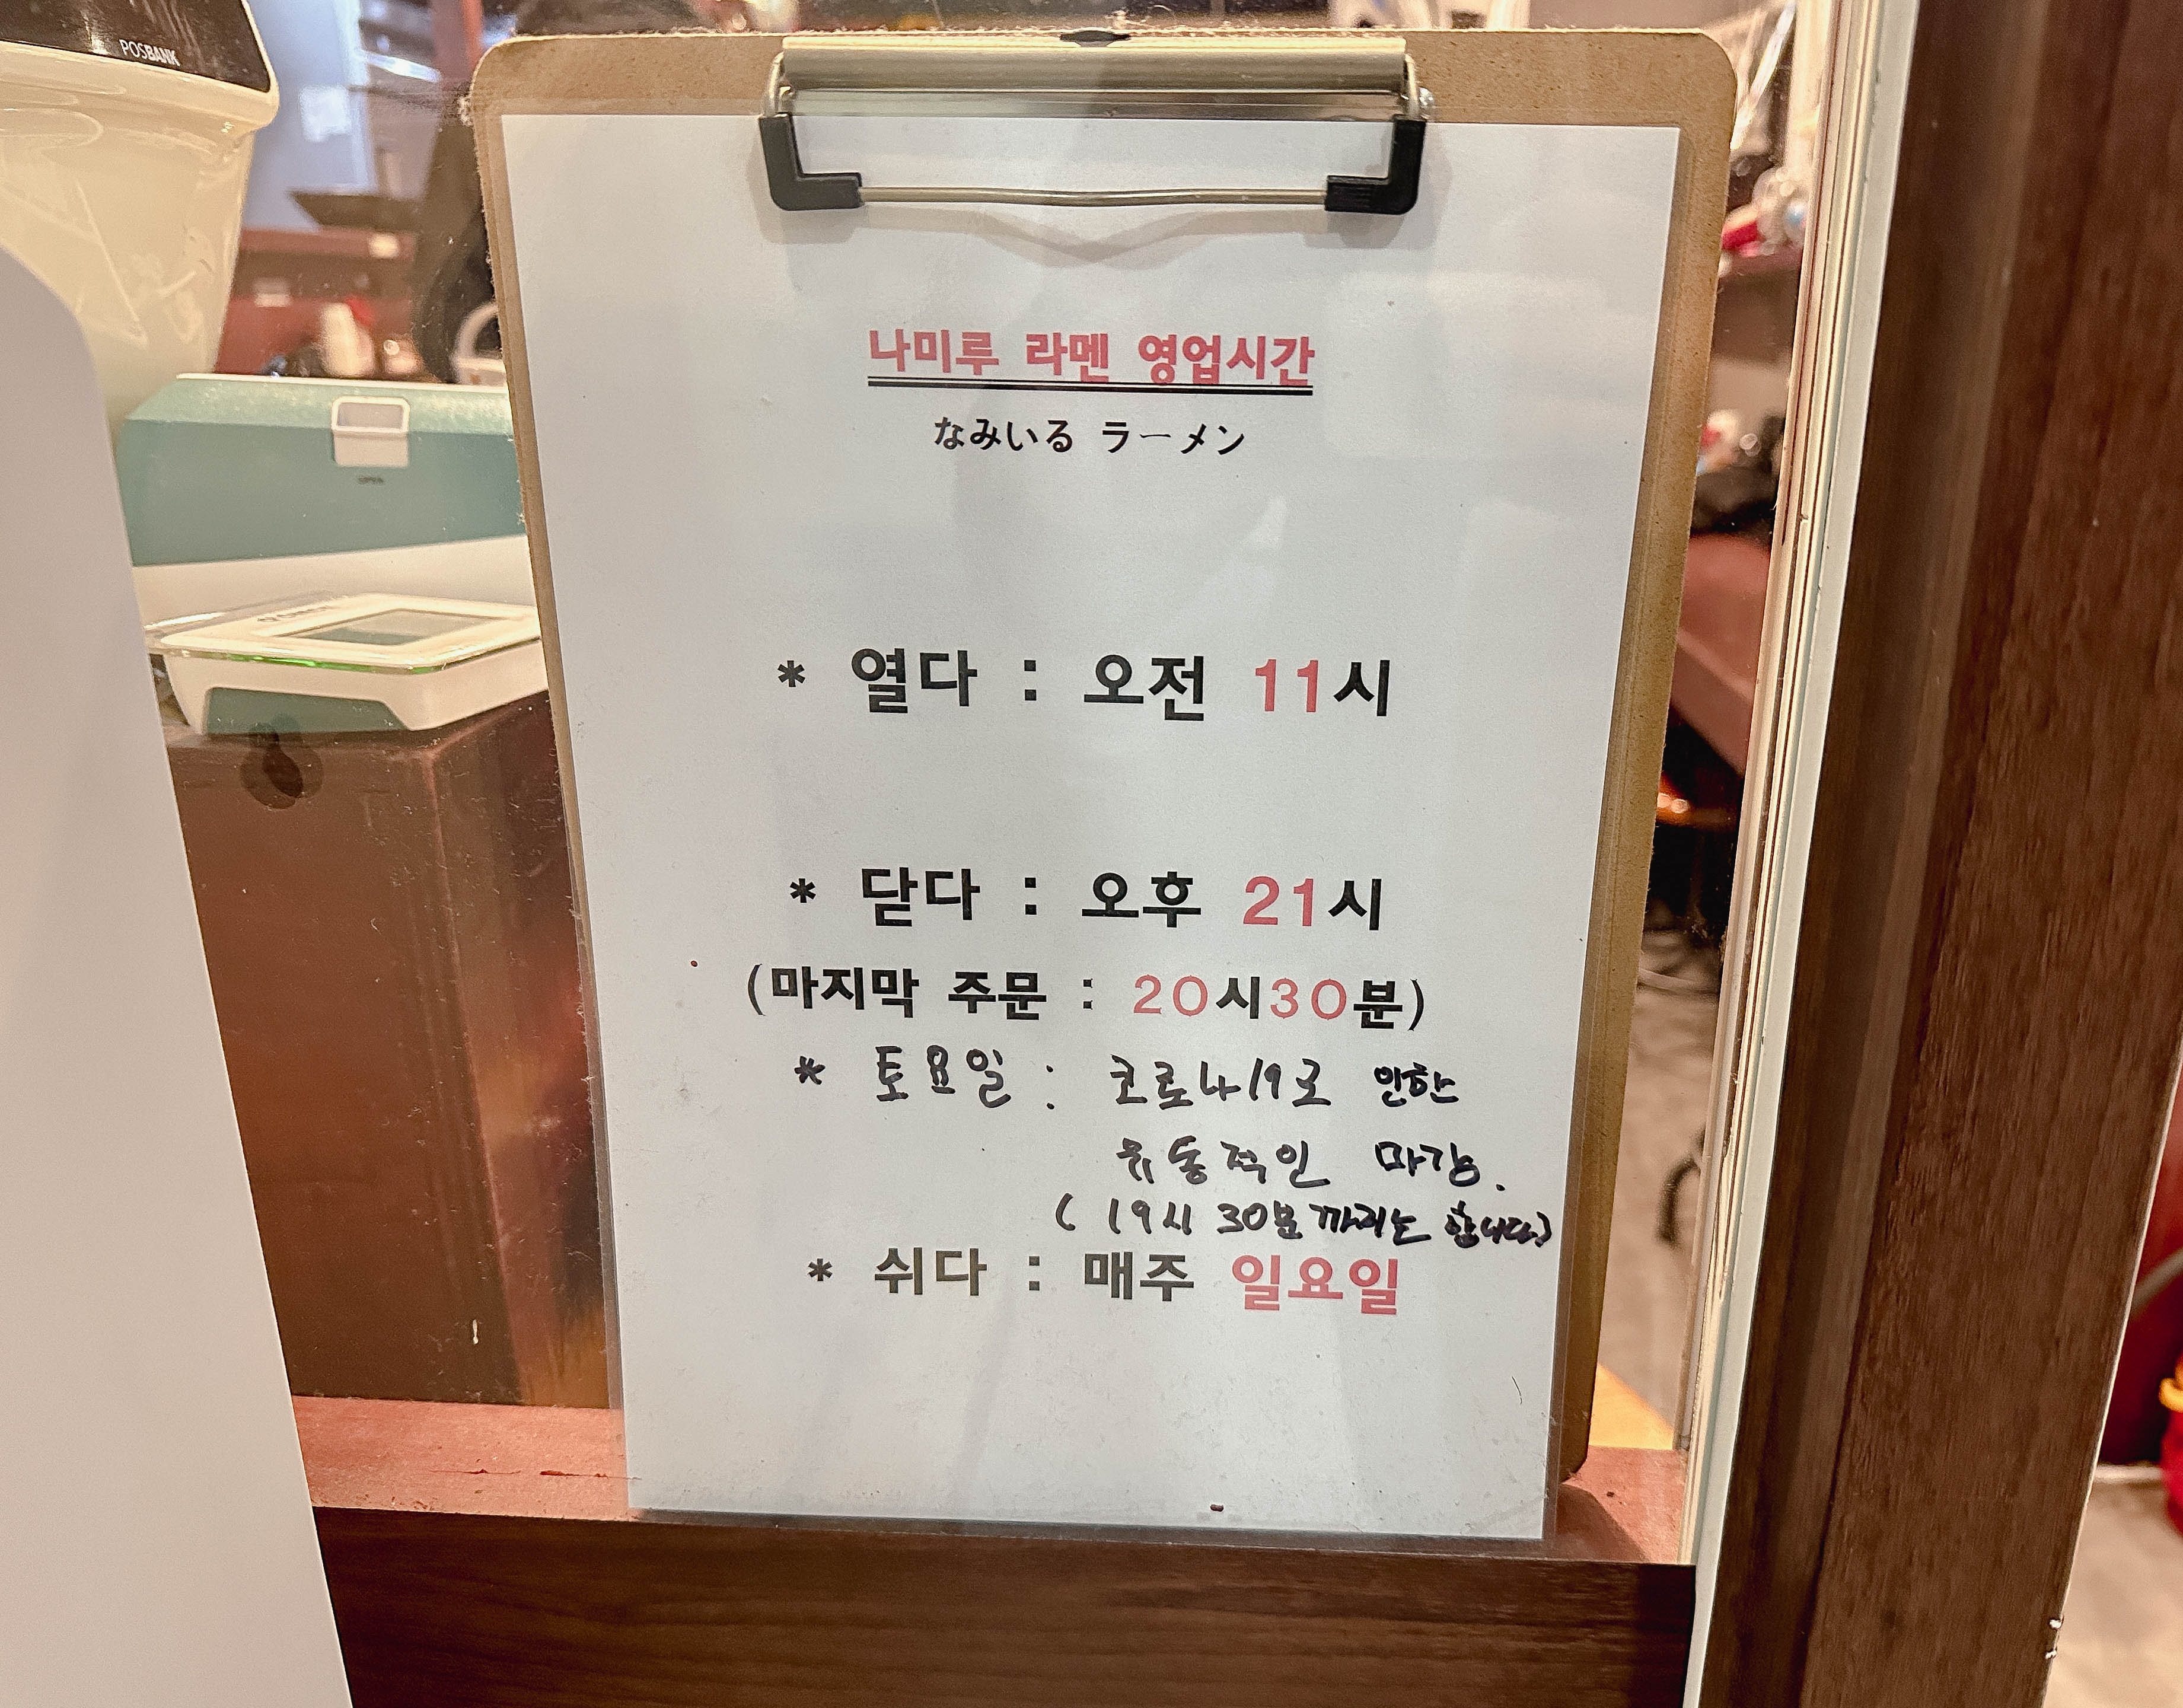 POSBANK
나미루 라멘 영업시간
なみいる ラーメン
OPEN
* 열다 : 오전 11시
* 닫다 : 오후 21시
(마지막 주문 : 20시30분)
* 토요일 : 코로나19로 인한
유동적인 마감.
( 19시 30분까지는 합니다)
* 쉬다 : 매주 일요일